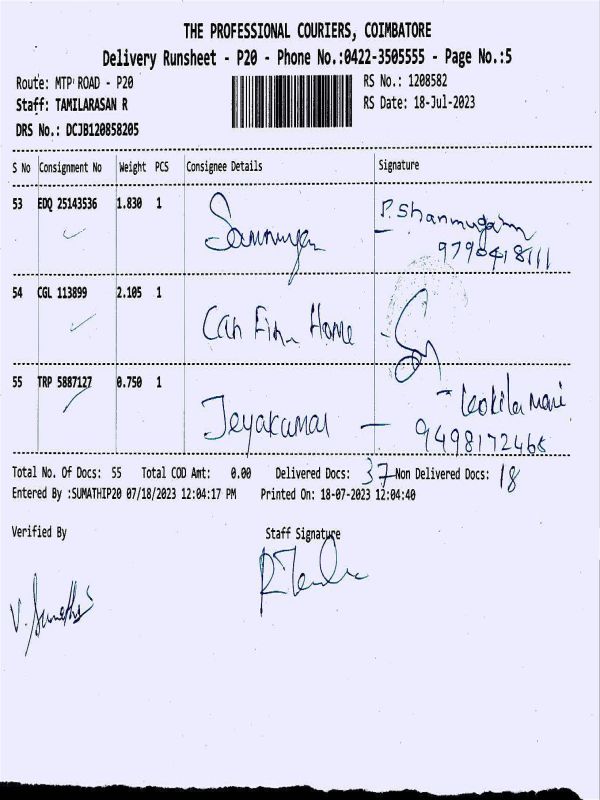 THE PROFESSIONAL COURIERS, COIMBATORE
Delivery Runsheet - P20 - Phone No.:0422-3505555 - Page No.:5
Route: MTP ROAD - P20
RS No.: 1208582
Staff: TAMILARASAN R
RS Date: 18-Jul-2023
DRS No.: DCJB120858205
S No Consignment No Weight PCS Consignee Details Signature
53 EDQ 25143536 1.830 1 P. Shanmugam
9790418111
54 CGL 113899 2.105 1 Can Fin Home
55 TRP 5887127 0.750 1 Jeyakumar - kokila mari
9498172465
Total No. Of Docs: 55 Total COD Amt: 0.00 Delivered Docs: 37 Non Delivered Docs: 18
Entered By :SUMATHIP20 07/18/2023 12:04:17 PM Printed On: 18-07-2023 12:04:40
Verified By Staff Signature
V. Sumathi